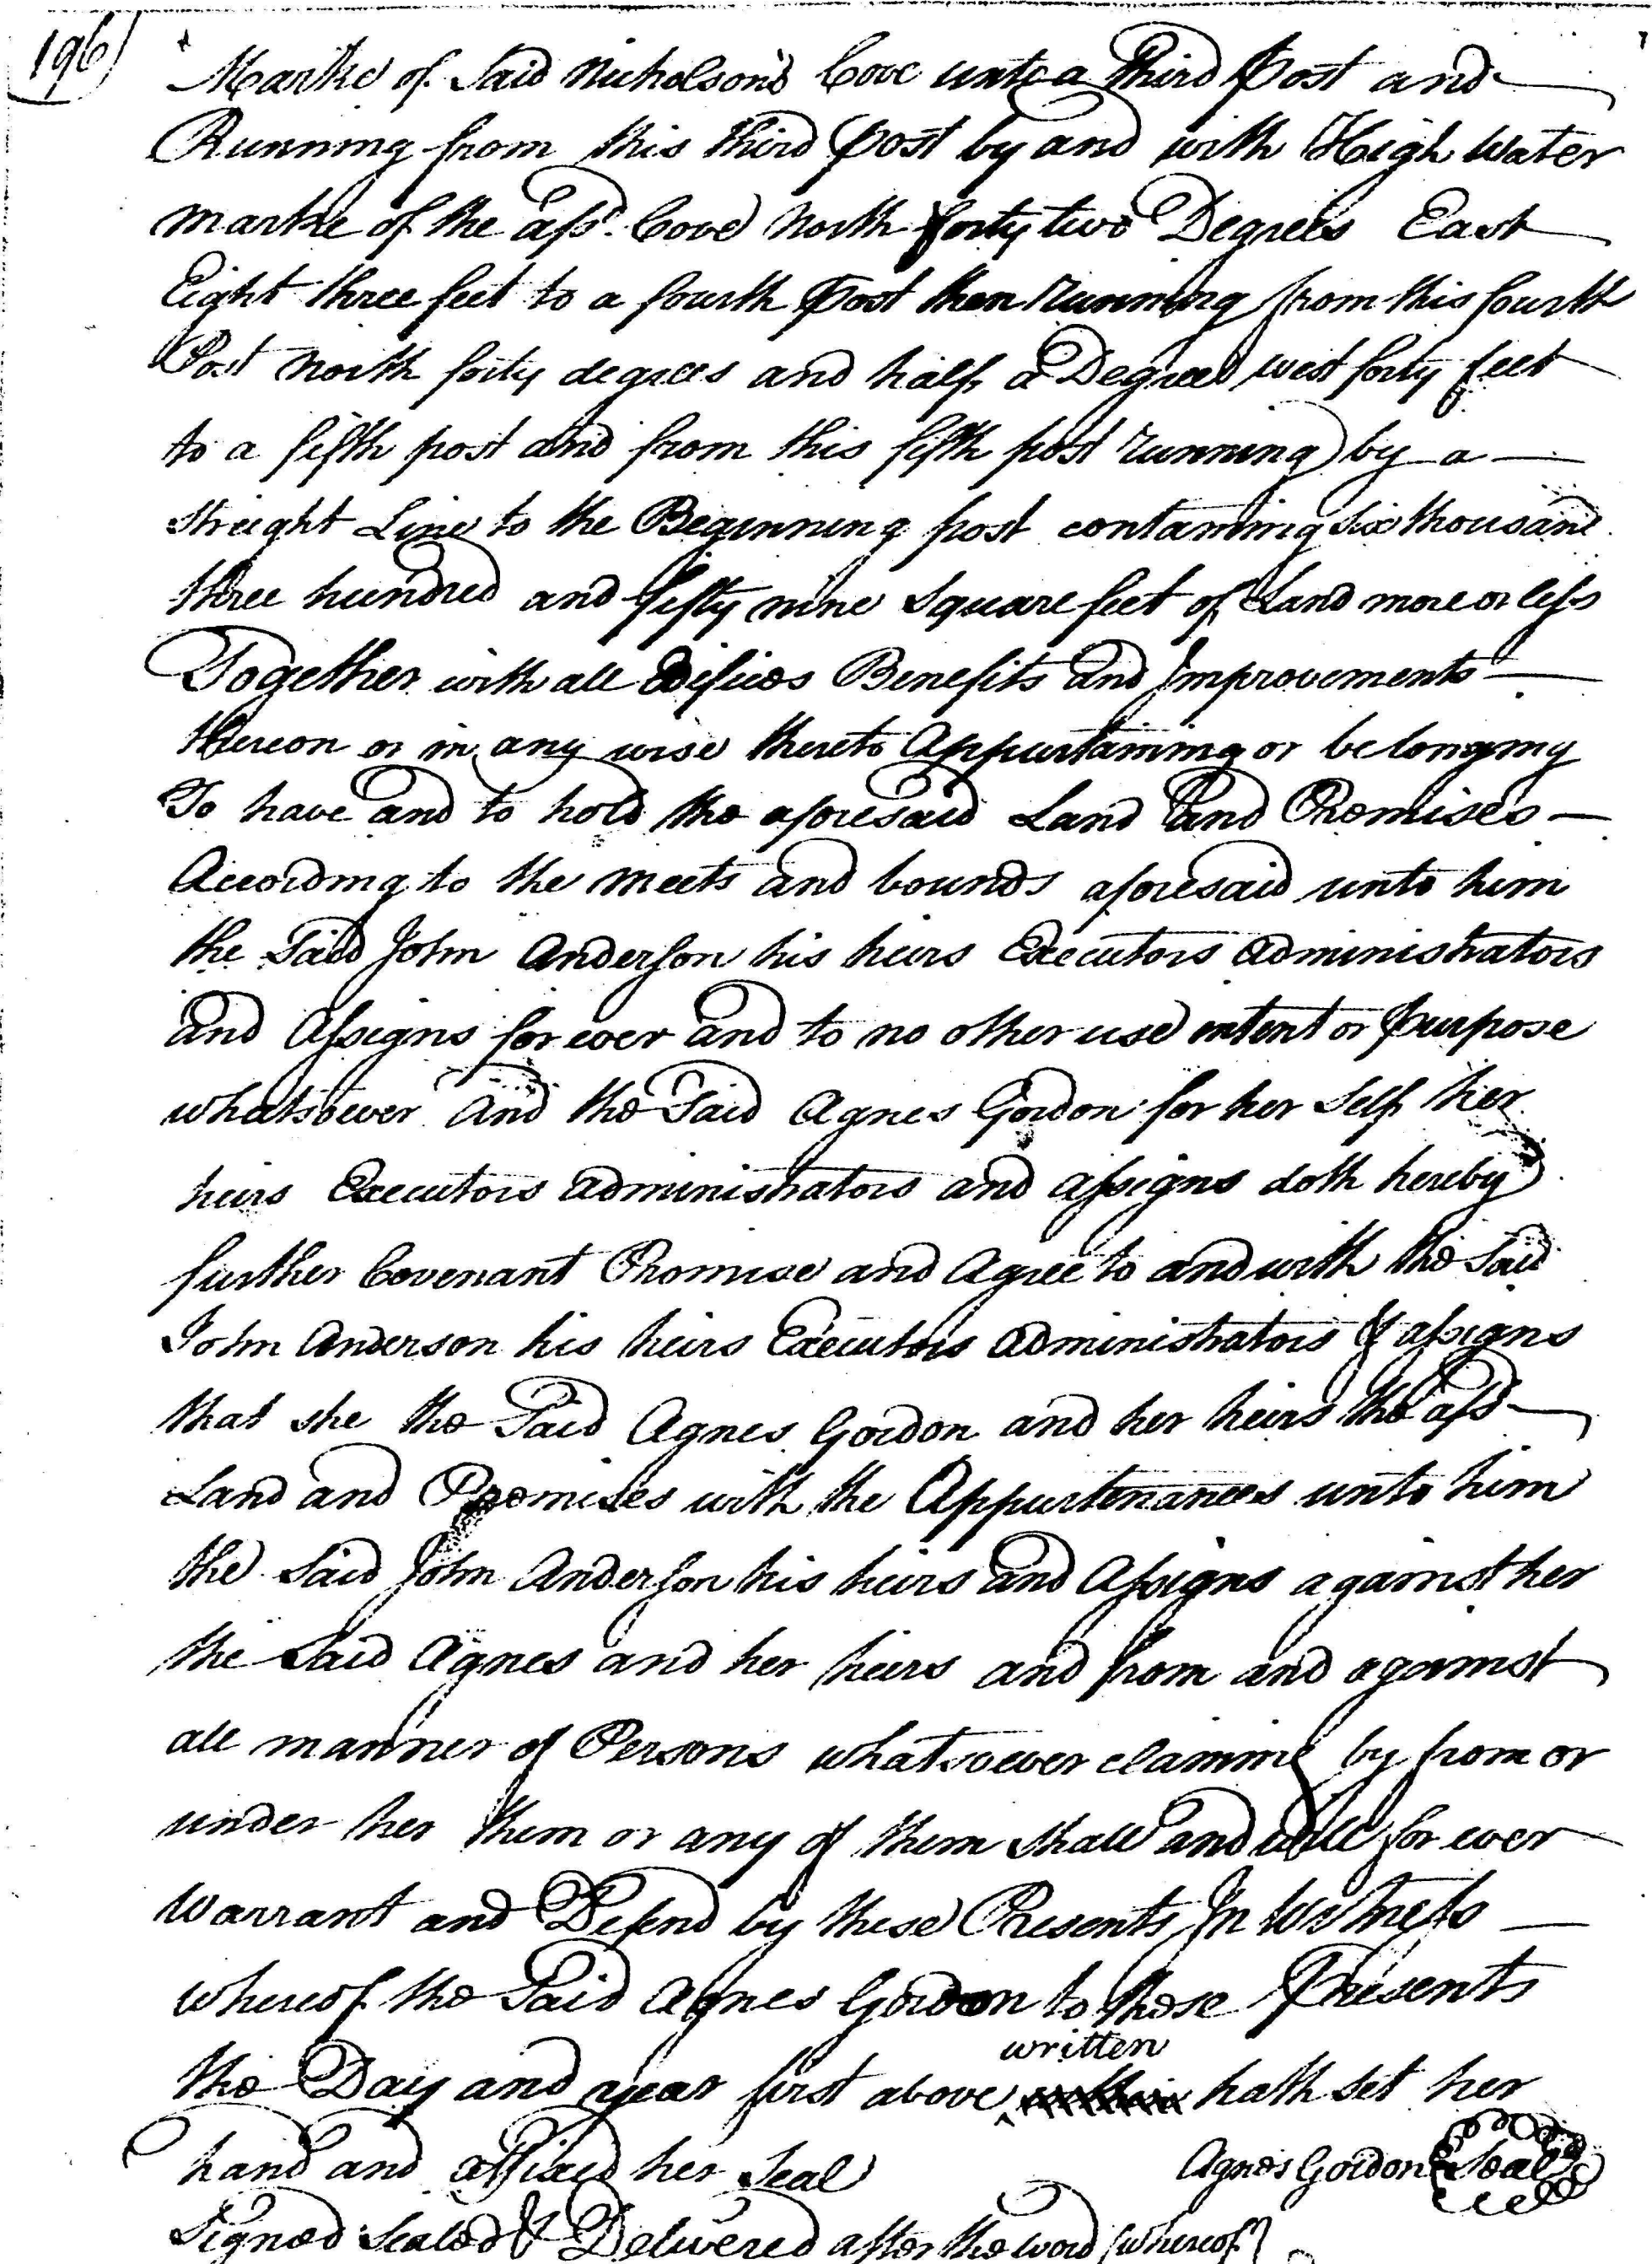 196
Marke of Said Nicholsons Cove unto a Third Post and
Running from this third post by and with High Water
marke of the afsd. Cove North forty two Degrees East
Eight three feet to a fourth Post then running from this fourth
Post North forty degrees and half a Degree west forty feet
to a fifth post and from this fifth post running by a
streight Line to the Beginning post containing six thousand
three hundred and fifty nine Square feet of Land more or less
Together with all Edifices Benefits and Improvements
thereon or in any wise thereto Appurtaining or belonging
To have and to hold the aforesaid Land and Premises
According to the meets and bounds aforesaid unto him
the Said John Anderson his heirs Executors administrators
and Assigns for ever and to no other use intent or purpose
whatsoever And the Said Agnes Gordon for her Self her
heirs Executors administrators and assigns doth hereby
further Covenant Promise and Agree to and with the Said
John Anderson his heirs Executors Administrators & assigns
that she the Said Agnes Gordon and her heirs the afsd
Land and Premises with the Appurtenances unto him
the Said John Anderson his heirs and Assigns against her
the Said Agnes and her heirs and from and against
all manner of Persons whatsoever claiming by from or
under her them or any of them shall and will for ever
Warrant and Defend by these Presents In Witness
whereof the Said Agnes Gordon to these Presents
written
the Day and year first above hath set her
hand and affixed her Seal Agnes Gordon Seal
Signed Sealed & Delivered after the word (whereof)